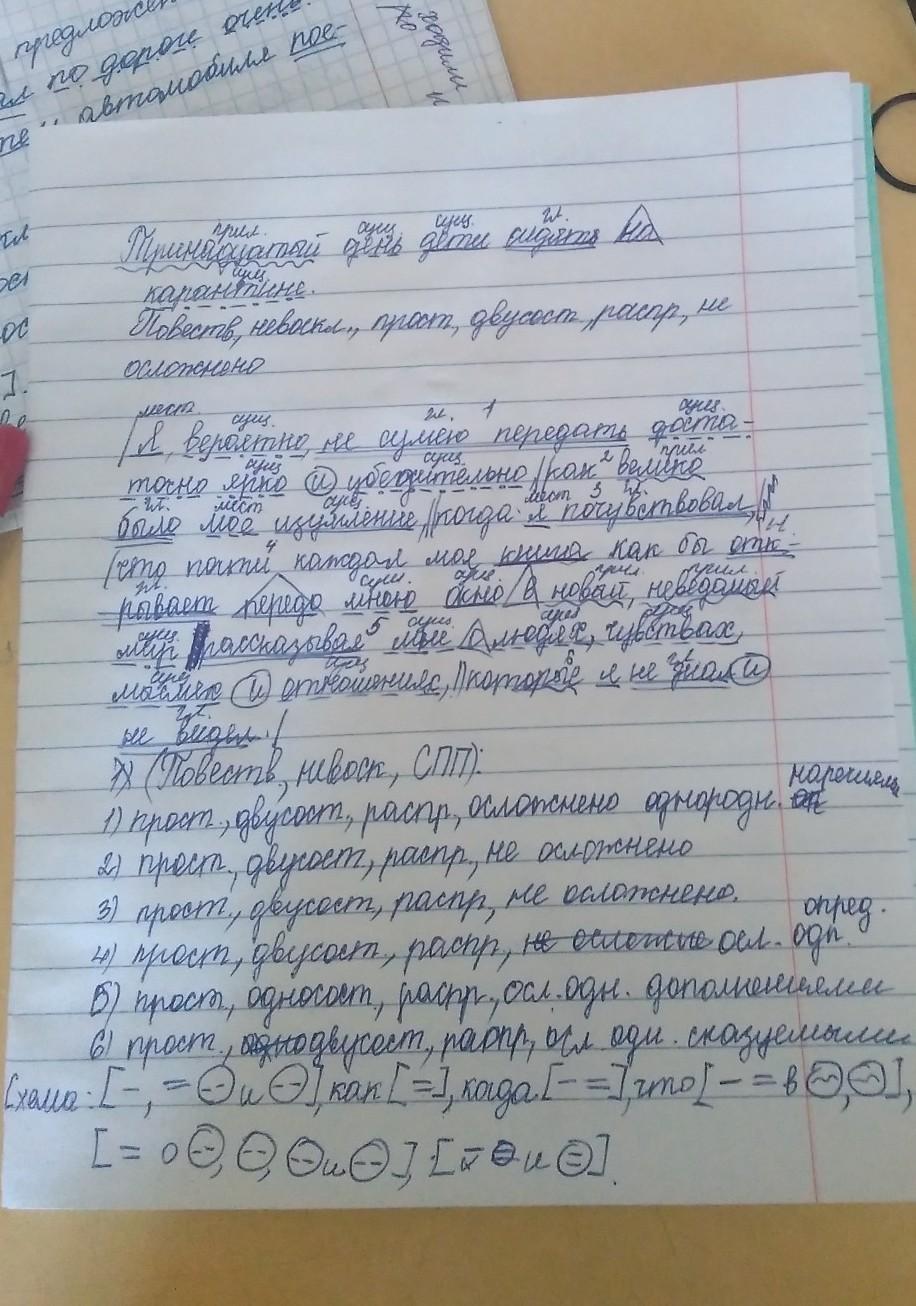 предложен
по дороге очень
автомобиля пое-
ходили
прил. сущ. сущ. гл.
Тринадцатый день дети сидят на
сущ.
карантине.
Повеств, невоскл., прост, двусост, распр, не
осложнено
мест. сущ. гл. 1 сущ.
Я, вероятно, не сумею передать доста-
сущ сущ. 2 прил
точно ярко и убедительно как велико
гл. мест сущ. мест 3 гл.
было мое изумление, когда я почувствовал,
4
что почти каждая моя книга как бы отк-
гл. сущ. сущ. прил. прил.
рывает передо мною окно в новый, неведомый
сущ. 5 сущ. сущ сущ.
мир рассказывая мне о людях, чувствах,
сущ. сущ 6 гл.
мыслях и отношениях, которые я не знал и
гл.
не видел.
(Повеств, невоск, СПП):
1) прост., двусост, распр, осложнено однородн. наречиями
2) прост., двусост, распр, не осложнено
3) прост., двусост, распр, не осложнено.
4) прост, двусост, распр, не осложне осл. одн. опред.
5) прост, односост, распр., осл. одн. дополнениями
6) прост., одно двусост, распр, осл. одн. сказуемыми
Схема: [-, = и ], как [=], когда [- =], что [- = в , ],
[= о , , и ], [ и ].